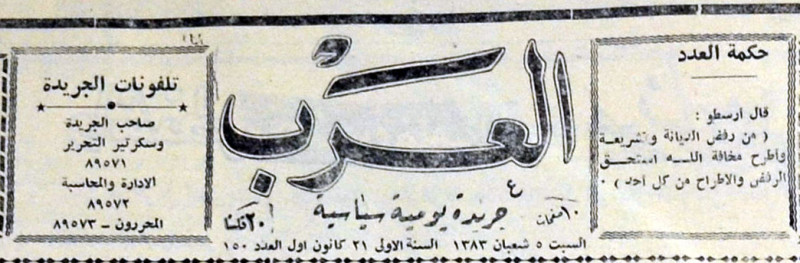 حكمة العدد
قال ارسطو :
( من رفض الديانة والشريعة
واطرح مخافة اللـه استحق
الرفض والاطراح من كل احد ) ٠
العَرَب
١٠ صفحات
جريدة يومية سياسية
٢٠ فلسًا
السبت ٥ شعبان ١٣٨٣ السنة الاولى ٢١ كانون اول العدد ١٥٠
تلفونات الجريدة
صاحب الجريدة
وسكرتير التحرير
٨٩٥٧١
الادارة والمحاسبة
٨٩٥٧٢
المحررون - ٨٩٥٧٣